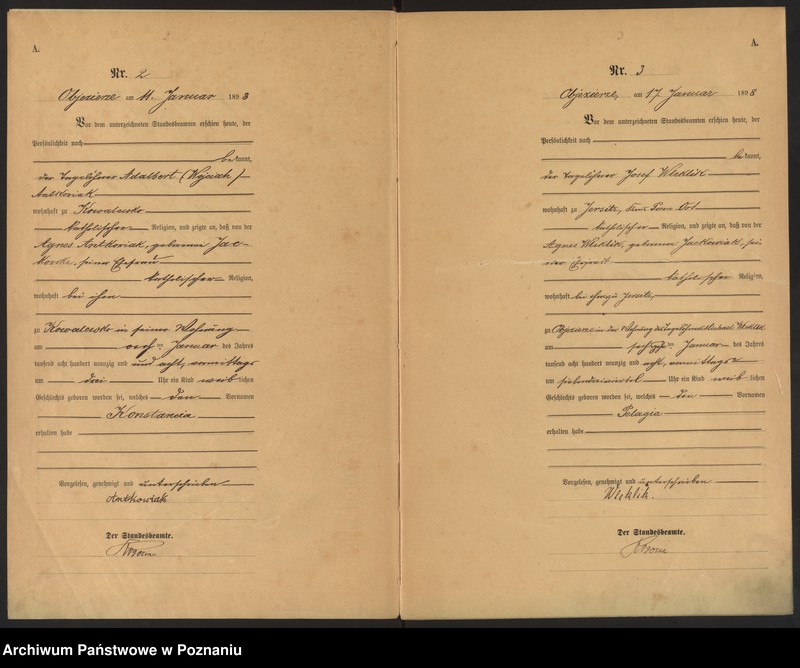 A.
Nr. 2
Objezierze am 11. Januar 1898
Vor dem unterzeichneten Standesbeamten erschien heute, der
Persönlichkeit nach
bekannt,
der Tagelöhner Adalbert (Wojciech)
Antkowiak
wohnhaft zu Kowalewko
katholischer Religion, und zeigte an, daß von der
Agnes Antkowiak, geborenen
seiner Ehefrau
katholischer Religion,
wohnhaft bei ihm
zu Kowalewko in seiner Wohnung
am Januar des Jahres
tausend acht hundert neunzig und acht, vormittags
um drei Uhr ein Kind weiblichen
Geschlechts geboren worden sei, welches den Vornamen
Konstancia
erhalten habe
Vorgelesen, genehmigt und unterschrieben
Antkowiak
Der Standesbeamte.
A.
Nr. 3
Objezierze, am 17. Januar 1898
Vor dem unterzeichneten Standesbeamten erschien heute, der
Persönlichkeit nach
bekannt,
der Tagelöhner Josef Wleklik
wohnhaft zu Jersitz,
katholischer Religion, und zeigte an, daß von der
Agnes Wleklik, geborenen Jackowiak, sei-
ner Ehefrau
katholischer Religion,
wohnhaft bei ihm zu Jersitz,
zu Objezierze in der Wohnung des Tagelöhners Michael Wleklik
am Januar des Jahres
tausend acht hundert neunzig und acht, vormittags
um Uhr ein Kind weiblichen
Geschlechts geboren worden sei, welches den Vornamen
Pelagia
erhalten habe
Vorgelesen, genehmigt und unterschrieben
Wleklik.
Der Standesbeamte.
Archiwum Państwowe w Poznaniu